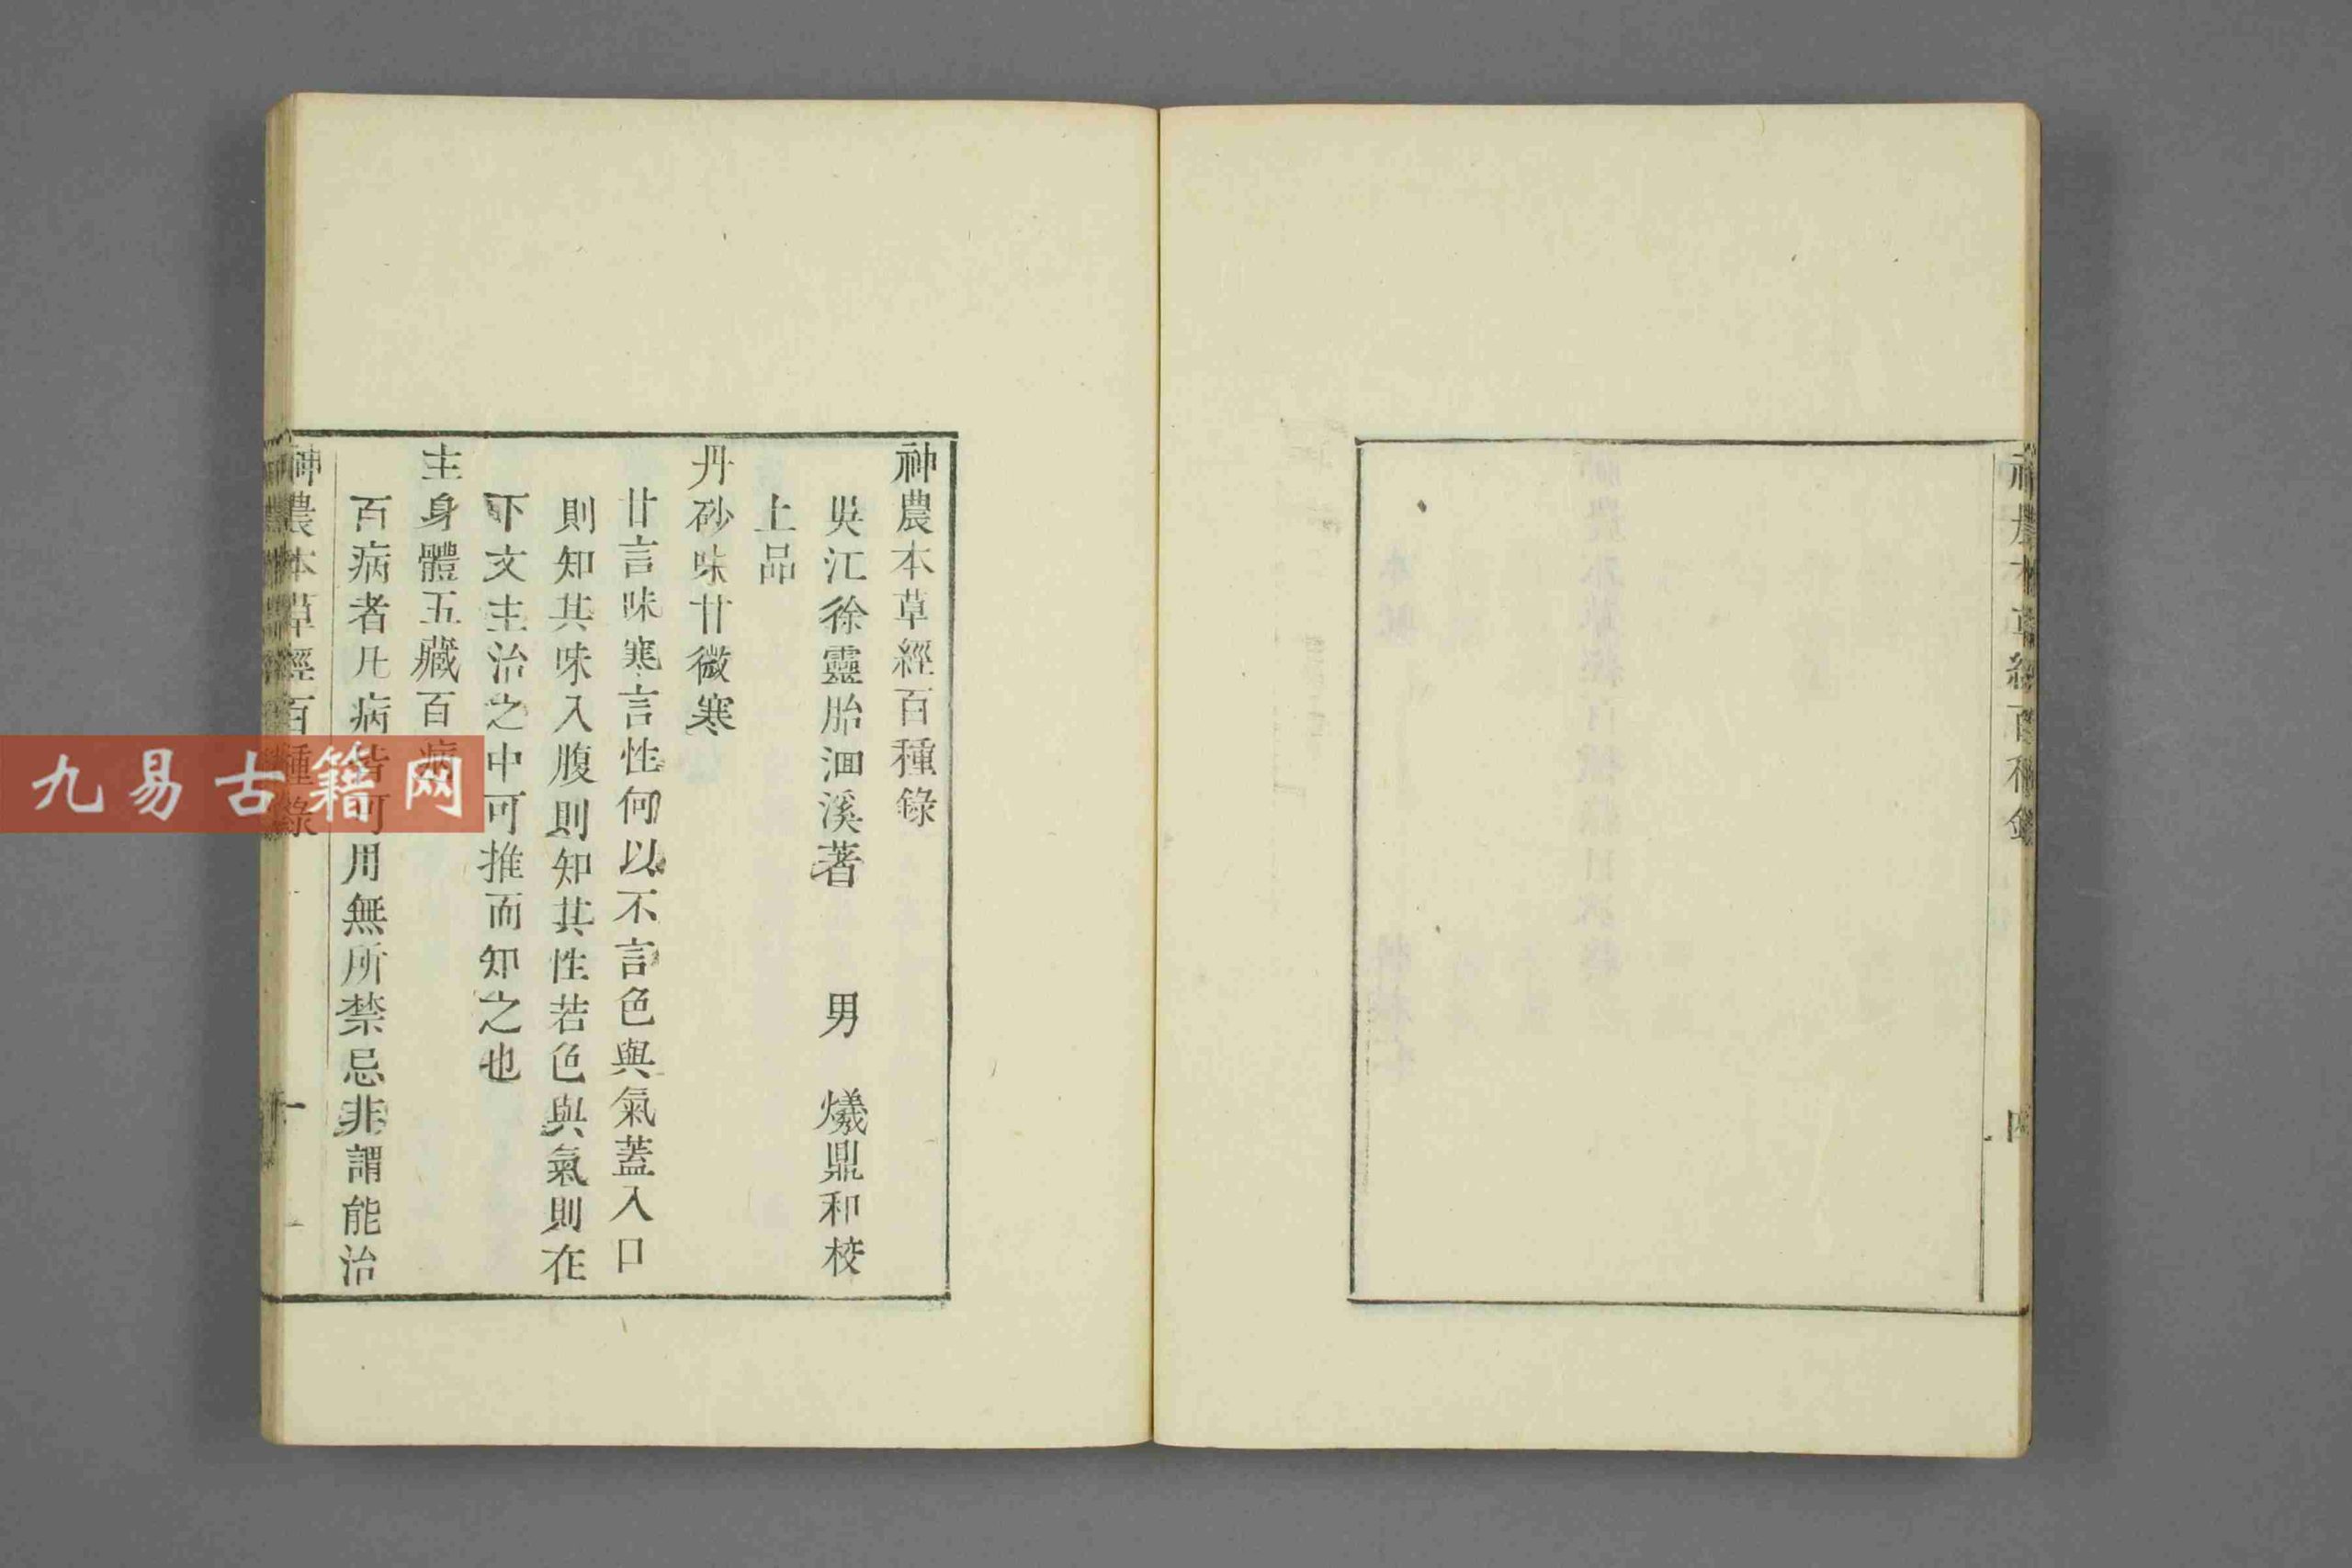 神農本草經百種錄
四
神農本草經百種錄
吳江徐靈胎洄溪著 男 爔鼎和校
上品
丹砂味甘微寒
甘言味寒言性何以不言色與氣蓋入口
則知其味入腹則知其性若色與氣則在
下文主治之中可推而知之也
主身體五藏百病
百病者凡病皆可用無所禁忌非謂能治
神農本草經百種錄
一
九易古籍网